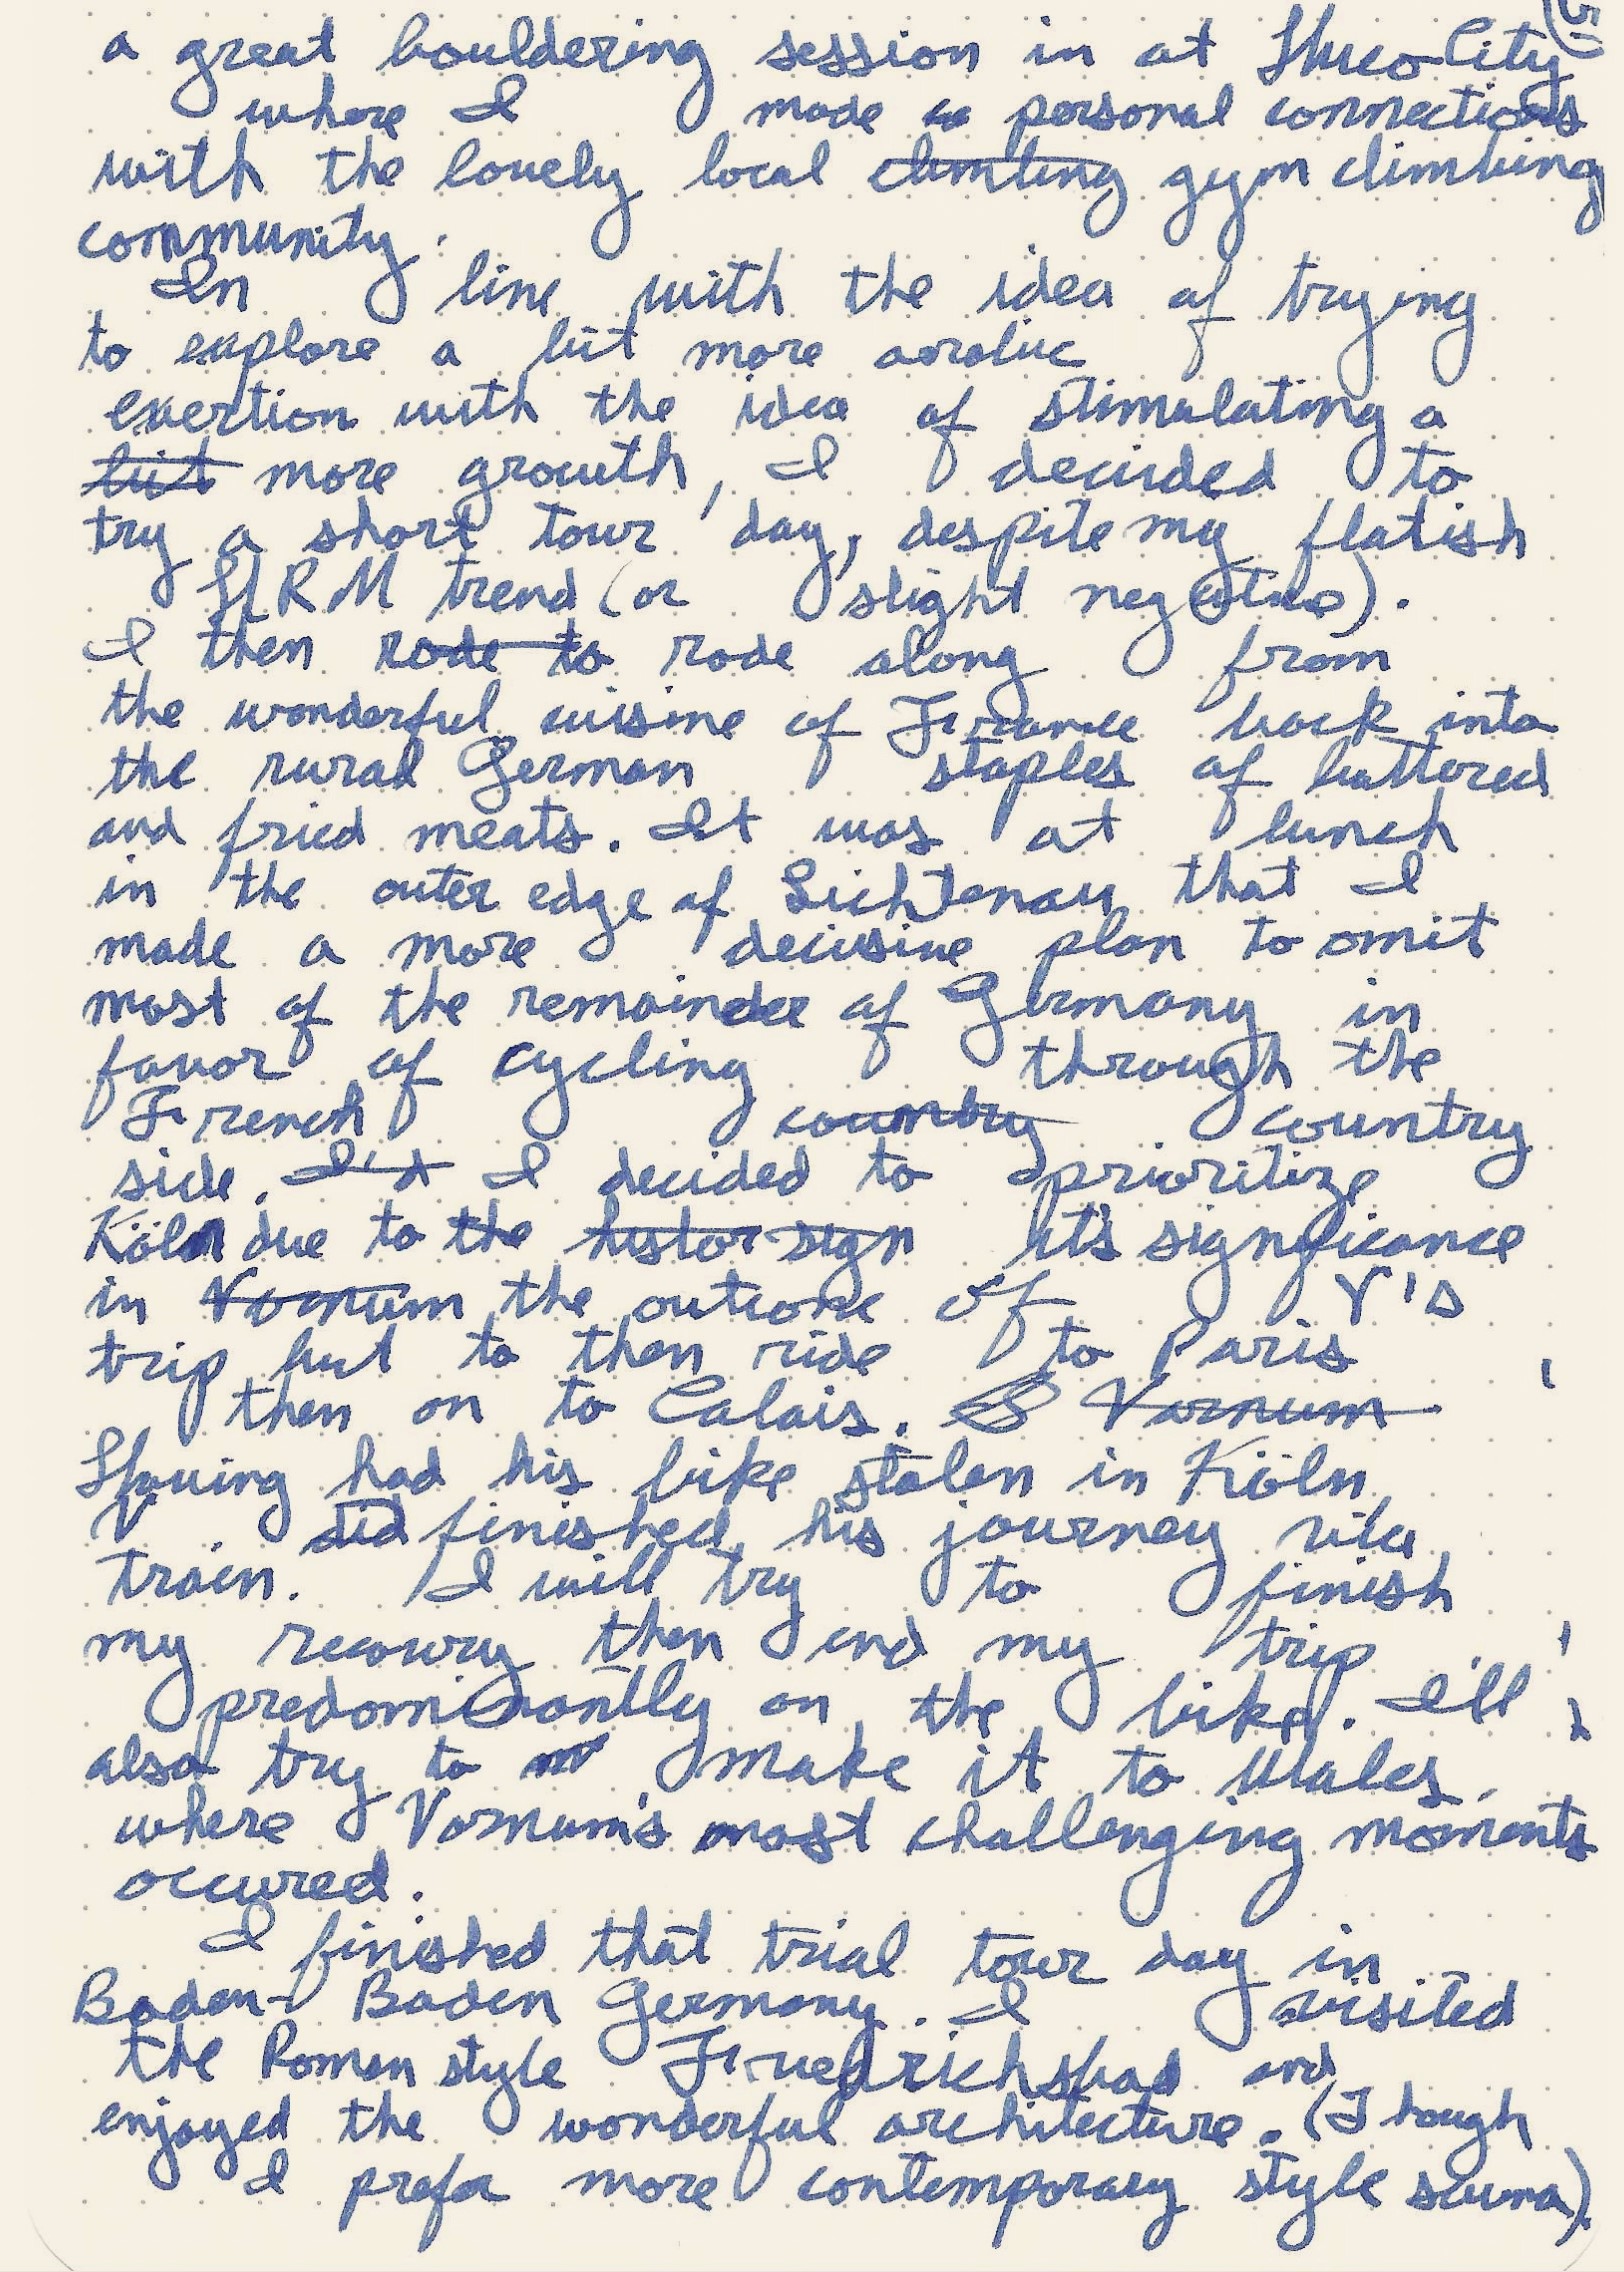 a great bouldering session in at Hueco City
where I made a personal connections
with the lovely local climbing gym climbing
community.
In line with the idea of trying
to explore a bit more aerobic
exertion with the idea of stimulating a
bit more growth, I decided to
try a short tour day, despite my flatish
HRM trend (or slight negative).
I then rode to rode along from
the wonderful cuisine of France back into
the rural German staples of buttered
and fried meats. It was at lunch
in the outer edge of Lichtenau that I
made a more decisive plan to omit
most of the remainder of Germany in
favor of cycling through the
French country country
side. I'd I decided to prioritize
Köln due to the histor sign it's significance
in Varnum the outcome of V's
trip but to then ride to Paris
then on to Calais. Varnum
Having had his bike stolen in Köln
V did finished his journey via
train. I will try to finish
my recovery then end my trip
predominantly on the bike. I'll
also try to make it to Wales,
where Varnum's most challenging moments
occured.
I finished that trial tour day in
Baden-Baden Germany. I visited
the Roman style Friedrichsbad and
enjoyed the wonderful architecture. (Though
I prefer more contemporary style sauna)